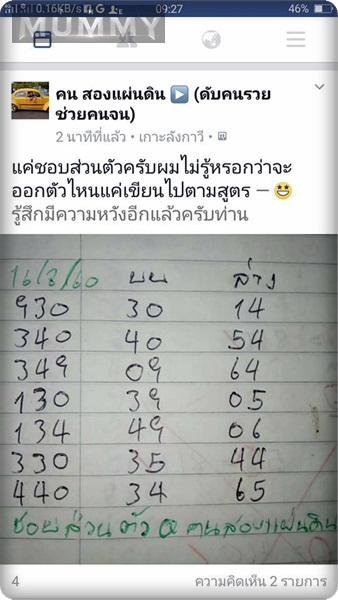 0.16KB/s 09:27 46%
MUMMY
คน สองแผ่นดิน ▶ (ดับคนรวย
ช่วยคนจน)
2 นาทีที่แล้ว • เกาะลังกาวี •
แค่ชอบส่วนตัวครับผมไม่รู้หรอกว่าจะ
ออกตัวไหนแค่เขียนไปตามสูตร — 😀
รู้สึกมีความหวังอีกแล้วครับท่าน
16/3/60 บน ล่าง
930 30 14
340 40 54
349 09 64
130 39 05
134 49 06
330 35 44
440 34 65
ชอบส่วนตัว @ คนสองแผ่นดิน
4 ความคิดเห็น 2 รายการ